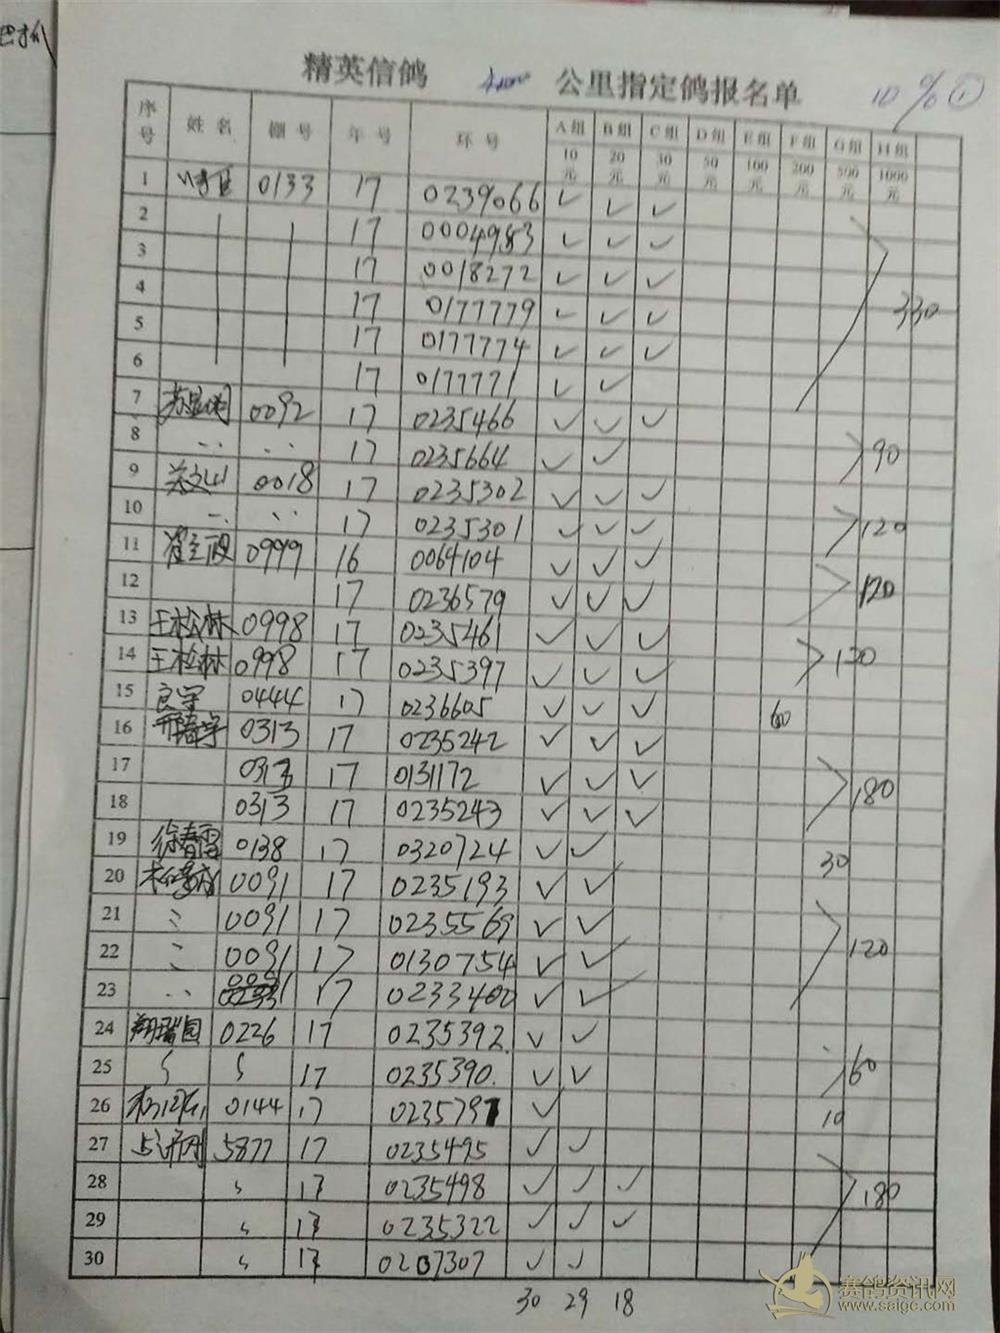 精英信鸽 公里指定鸽报名单 10% ①
序号 姓名 棚号 年号 环号 A组 B组 C组 D组 E组 F组 G组 H组
10元 20元 30元 50元 100元 200元 500元 1000元
1 0133 17 0239066 ✓ ✓ ✓
2 17 0004983 ✓ ✓ ✓
3 17 0018272 ✓ ✓ ✓
4 17 0177779 ✓ ✓ ✓ 330
5 17 0177774 ✓ ✓ ✓
6 17 0177771 ✓ ✓
7 0092 17 0235466 ✓ ✓ ✓
8 17 0235664 ✓ ✓ 90
9 0018 17 0235302 ✓ ✓ ✓
10 17 0235301 ✓ ✓ ✓ 120
11 16 0064104 ✓ ✓ ✓
12 17 0236579 ✓ ✓ ✓ 120
13 王松林 0998 17 0235461 ✓ ✓ ✓
14 王松林 0998 17 0235397 ✓ ✓ ✓ 120
15 0444 17 0236605 ✓ ✓ ✓ 60
16 0313 17 0235242 ✓ ✓ ✓
17 0313 17 0131172 ✓ ✓ ✓ 180
18 0313 17 0235243 ✓ ✓ ✓
19 徐春雷 0138 17 0320724 ✓ ✓ 30
20 0091 17 0235193 ✓ ✓
21 0091 17 0235569 ✓ ✓
22 0091 17 0130754 ✓ ✓ 120
23 17 0233400 ✓ ✓
24 0226 17 0235392 ✓ ✓
25 17 0235390 ✓ ✓ 60
26 0144 17 023579 ✓ 10
27 5877 17 0235495 ✓ ✓
28 17 0235498 ✓ ✓ ✓ 180
29 17 0235322 ✓ ✓ ✓
30 17 0207307 ✓ ✓
30 29 18
赛鸽资讯网
www.saigc.com